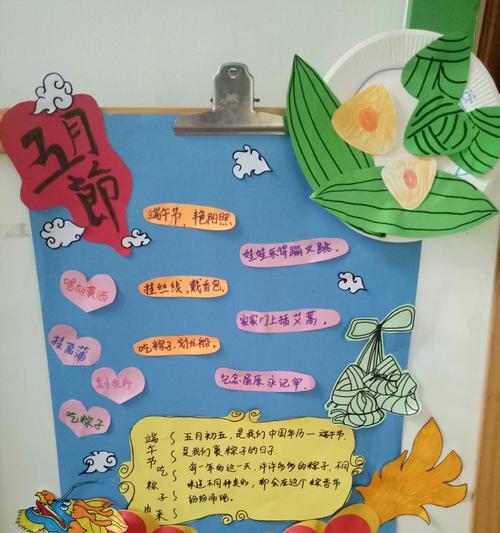 五月節
端午节，艳阳照
娃娃乐得蹦又跳.
挂丝线，戴香包.
家家门上插艾蒿.
吃粽子，划龙船.
纪念屈原永记牢.
喝雄黄酒
挂菖蒲
划龙舟
吃粽子
端午节吃粽子由来
五月初五，是我们中国年历一端午节
是我们裹粽子的日子.
每一年的这一天，许许多多的粽子，不同
味道不同种类的，都会在这个粽香节
纷纷市场。